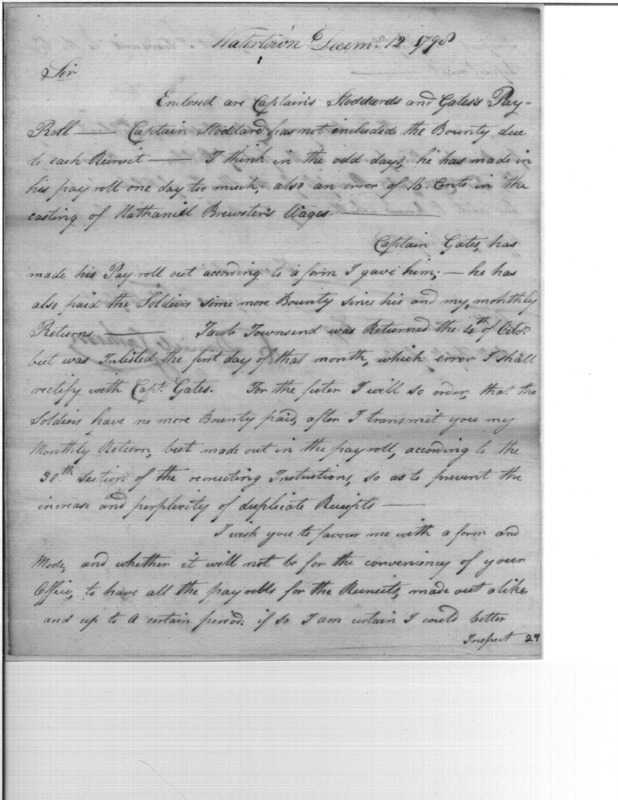 Watertown Decemr. 12 1798
Sir
Enclosed are Captains Stoddards and Gates's Pay-
Roll — Captain Stoddard has not included the Bounty due
to each Recruit — I think in the odd days, he has made in
his pay roll one day too much; also an error of 10. Cents in the
casting of Nathaniel Brewster's Wages. —
Captain Gates, has
made his Pay roll out according to a form I gave him; — he has
also paid the Soldiers some more Bounty since his and my, monthly
Returns. — Jacob Townsend was Returned the 4th of Octor.
but was Inlisted the first day of that month, which error I shall
rectify with Capt. Gates. For the futer I will so order, that the
Soldiers, have no more Bounty paid, after I transmit you my
Monthly Return, but made out in the pay roll, according to the
30th Section of the recruiting Instructions, so as to prevent the
increase and perplexity of duplicate Receipts —
I wish you to favour me with a form and
Mode, and whether it will not be for the conveniency of your
Office, to have all the pay rolls for the Recruits, made out alike
and up to a certain period. if so I am certain I could better
Inspect 29